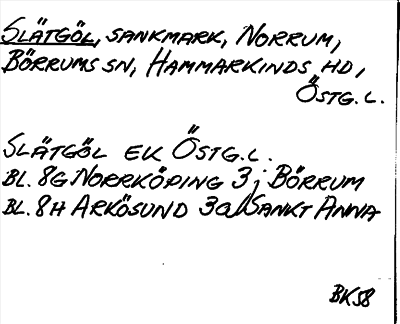 SLÄTGÖL, SANKMARK, NORRUM,
BÖRRUMS SN, HAMMARKINDS HD,
ÖSTG. L.
SLÄTGÖL EK ÖSTG. L.
BL. 8G NORRKÖPING 3j BÖRRUM
BL. 8H ARKÖSUND 3a SANKT ANNA
BK58